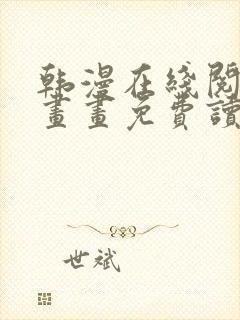 韩漫在綫閱
畫畫免費讀
世斌